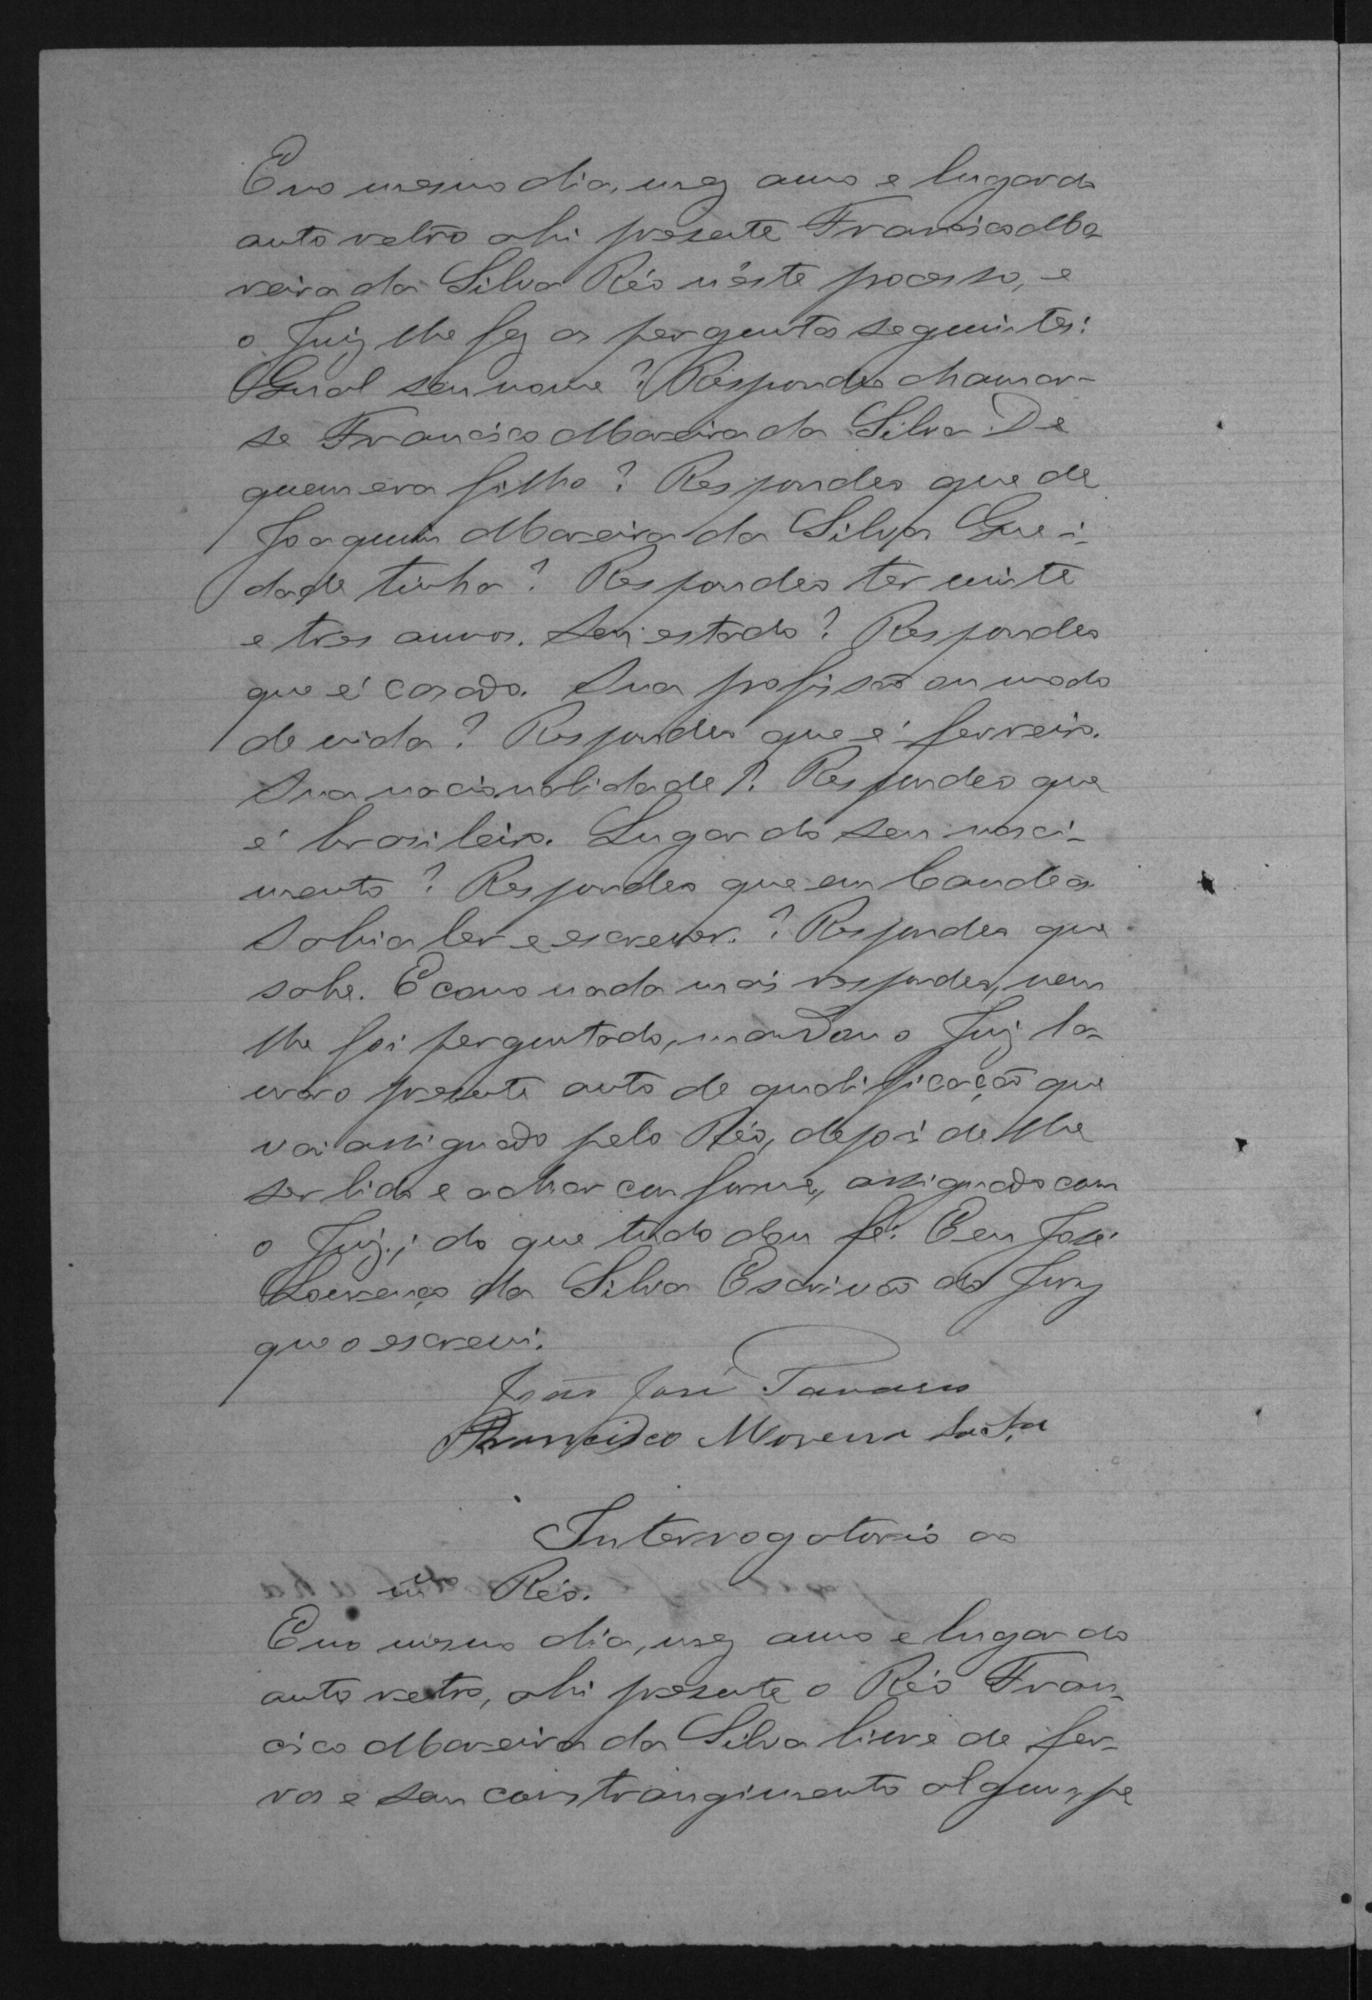 E no mesmo dia, mez anno e lugar do
auto retro ahi presente Francisco Mo-
reira da Silva Réo n'este processo, e
o Juiz lhe fez as perguntas seguintes:
Qual seu nome? Respondeo chamar-
se Francisco Moreira da Silva. De
quem era filho? Respondeo que de
Joaquim Moreira da Silva Que i-
dade tinha? Respondeo ter vinte
e tres annos. Seu estado? Respondeo
que é casado. Sua profissão ou modo
de vida? Respondeo que é ferreiro.
Sua nacionalidade? Respondeo que
é brasileiro. Lugar do seu nasci-
mento? Respondeo que em Candea
Sabia ler e escrever.? Respondeo que
sabe. E como nada mais respondeo, nem
lhe foi perguntado, mandou o Juiz la-
vrar o presente auto de qualificação que
vai assignado pelo Réo, depois de lhe
ser lido e achar conforme, assignado com
o Juiz; do que tudo dou fé. E eu José
Lourenço da Silva Escrivão do Jury
que o escrevi.
João José Tavares
Francisco Moreira da Silva
Interrogatorio ao
mmo Réo.
E no mesmo dia, mez anno e lugar do
auto retro, ahi presente o Réo Fran-
cisco Moreira da Silva livre de fer-
ros e sem constrangimento algum, pe